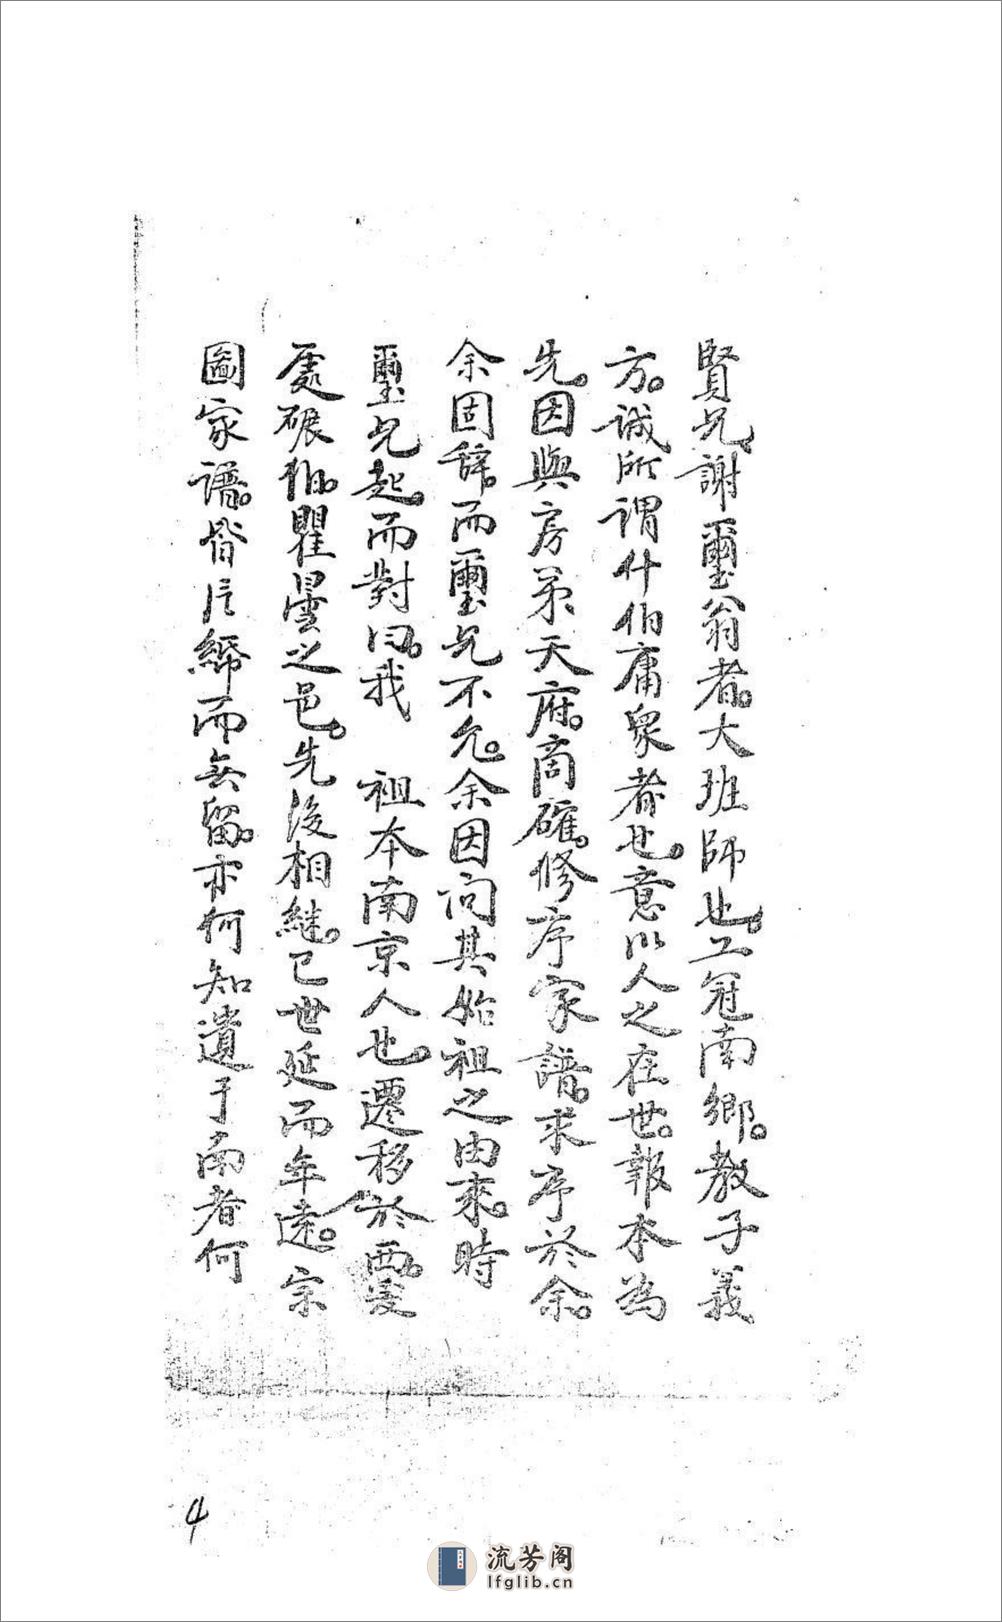 賢兄謝璽翁者。大班師也。工冠南鄉。教子義
方。誠所謂什伯庸衆者也。意以人之在世。報本為
先。因與房弟天府。商確。修序家譜。求序於余。
余固辞。而璽兄不允。余因问其始祖之由來。時
璽兄起。而對曰。我 祖本南京人也。遷移於西。爰
處碾伯。瞿曇之邑。先後相継。已世延而年遠。宗
圖家譜。昔片締而無留。亦何知遺于南者何
4
流芳阁
lfglib.cn